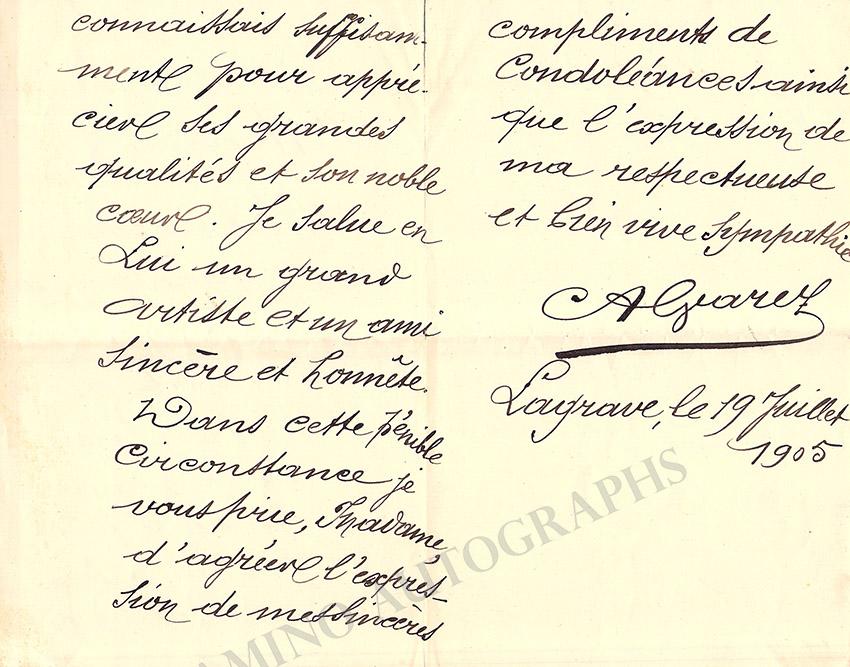 connaissais suffisam-
ment pour appré-
cier ses grandes
qualités et son noble
cœur. Je salue en
Lui un grand
artiste et un ami
sincère et honnête.
Dans cette pénible
circonstance je
vous prie, Madame,
d'agréer l'expres-
sion de mes sincères
compliments de
Condoléances ainsi
que l'expression de
ma respectueuse
et bien vive sympathie
Alvarez
Lagrave, le 19 Juillet
1905
TAMINO AUTOGRAPHS